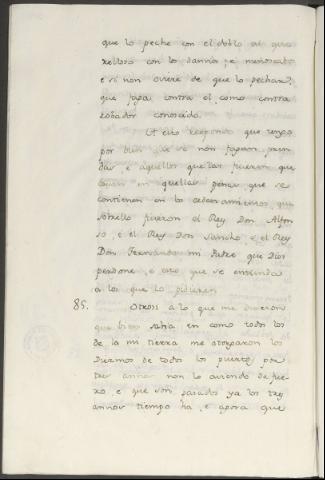 que lo peche con el doblo al que
relloso con los dannos, e menoscabos
e si non oviere de que lo pechar,
que faga contra el como contra
robador conoscido.
A esto respondo que tengo
por bien que se non fagan pren
das, e aquellos que las fizieren que
cayan en aquellas penas que se
contienen en los ordenamientos, que
sobrello fizieron el Rey Don Alfon
so, e el Rey Don Sancho e el Rey
Don Fernando mi Padre que Dios
perdone, e esto que se entienda
a los que lo pidieren
85. Otrosi a lo que me dixieron
que bien sabia en como todos los
de la mi tierra me otorgaron los
Diezmos de todos los puertos por
tres annos non lo aviendo de fue-
ro, e que son pasados ya los tres
annos tiempo ha, e agora que